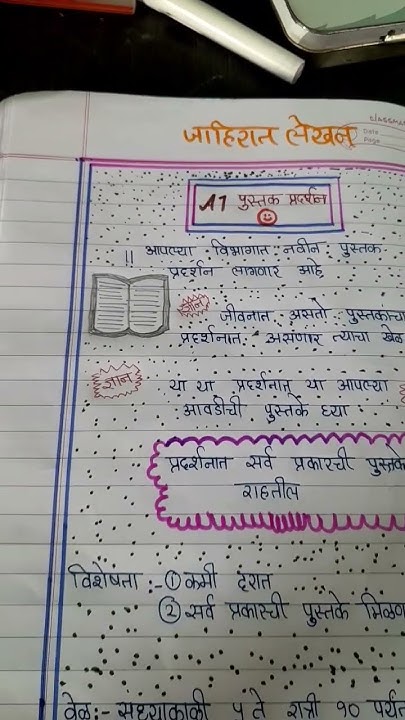 classmate
Date
Page
जाहिरात लेखन
A1 पुस्तक प्रदर्शन
!! आपल्या विभागात नवीन पुस्तक
प्रदर्शन लागणार आहे
ज्ञान
जीवनात असतो पुस्तकाचा
प्रदर्शनात असणार त्याचा खेळ
ज्ञान
या या प्रदर्शनात या आपल्या
आवडीची पुस्तके घ्या
प्रदर्शनात सर्व प्रकारची पुस्तके
राहतील
विशेषता :- ① कमी दरात
② सर्व प्रकारची पुस्तके मिळण
वेळ :- सध्याकाळी ५ ते रात्री १० पर्यंत